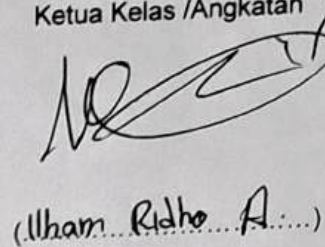 Ketua Kelas /Angkatan
(Ilham Ridho A.....)